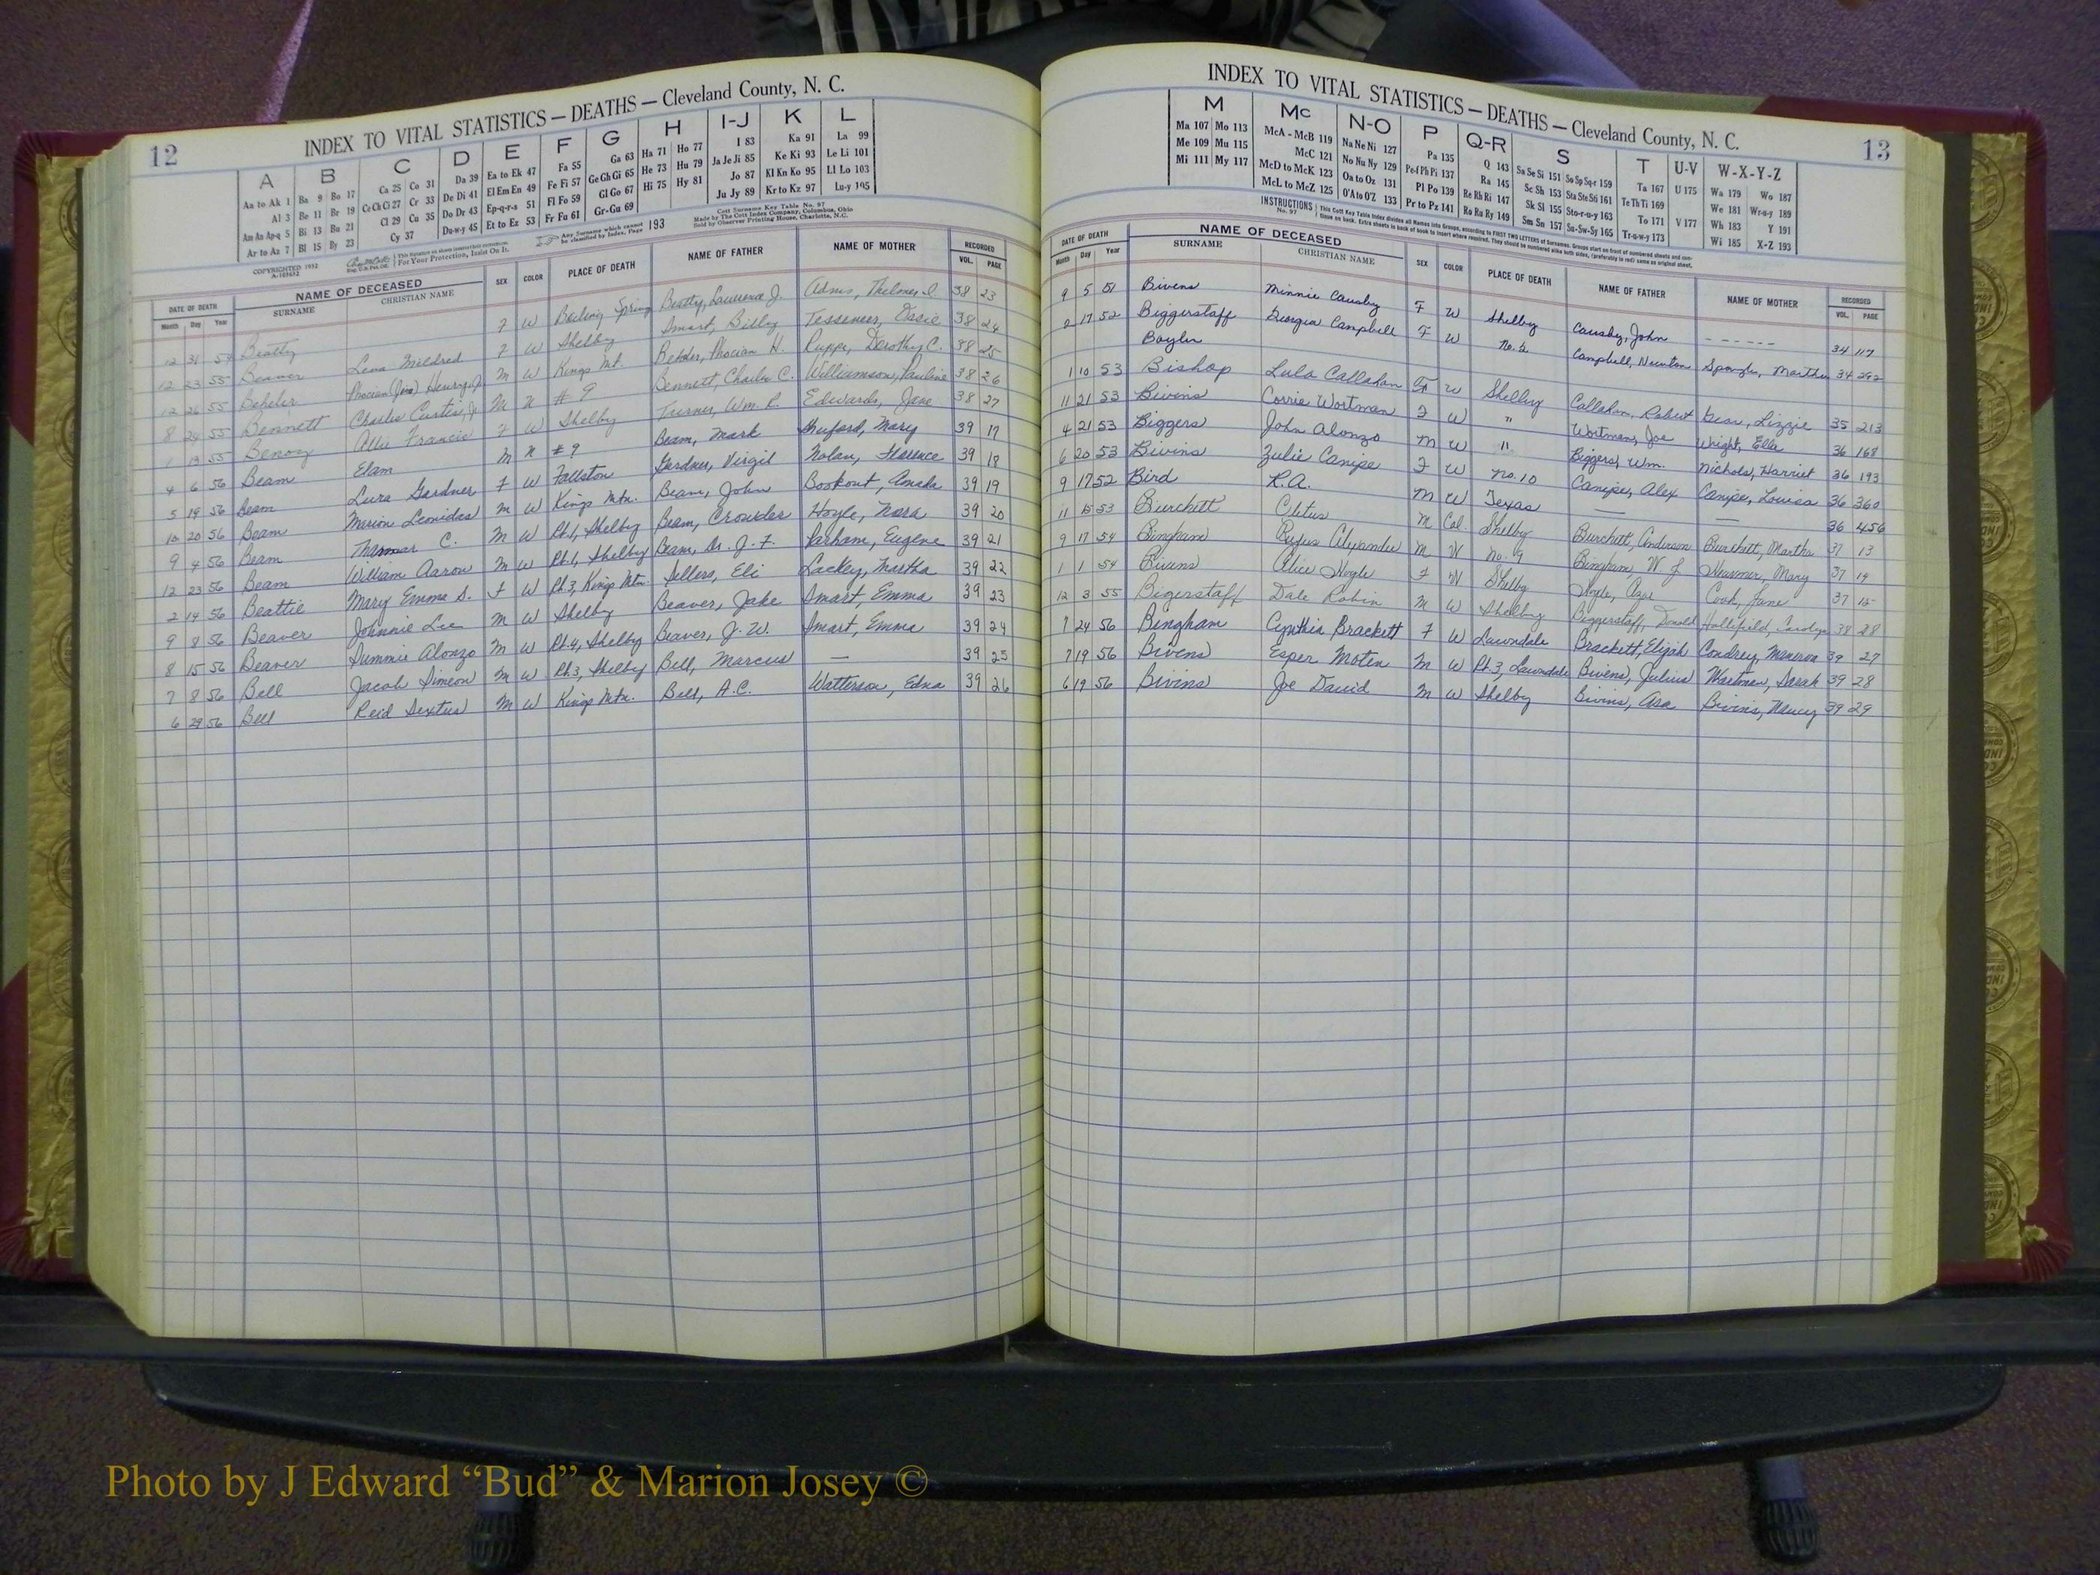 12
INDEX TO VITAL STATISTICS — DEATHS — Cleveland County, N. C.
A B C D E F G H I-J K L
Aa to Ak 1 Ba 9 Bo 17 Ca 25 Co 31 Da 39 Ea to Ek 47 Fa 55 Ga 63 Ha 71 Ho 77 I 83 Ka 91 La 99
Al 3 Be 11 Br 19 Ce Ch Ci 27 Cr 33 De Di 41 El Em En 49 Fe Fi 57 Ge Gh Gi 65 He 73 Hu 79 Ja Je Ji 85 Ke Ki 93 Le Li 101
Am An Ap-q 5 Bi 13 Bu 21 Cl 29 Cu 35 Do Dr 43 Ep-q-r-s 51 Fl Fo 59 Gl Go 67 Hi 75 Hy 81 Jo 87 Kl Kn Ko 95 Ll Lo 103
Ar to Az 7 Bl 15 By 23 Cy 37 Du-w-y 45 Et to Ez 53 Fr Fu 61 Gr-Gu 69 Ju Jy 89 Kr to Kz 97 Lu-y 105
COPYRIGHTED 1932
For Your Protection, Insist On It.
Any Surname which cannot be classified by Index, Page 193
Cott Surname Key Table No. 97
Made by The Cott Index Company, Columbus, Ohio
Sold by Observer Printing House, Charlotte, N.C.
DATE OF DEATH NAME OF DECEASED SEX COLOR PLACE OF DEATH NAME OF FATHER NAME OF MOTHER RECORDED
Month Day Year SURNAME CHRISTIAN NAME VOL. PAGE
12 31 54 Beatty F W Boiling Spring Beatty, Lawrence J. 38 23
12 23 55 Beaver Lena Mildred F W Shelby Smart, Billy Tessener, Essie 38 24
12 26 55 Beheler Henry, Jr. M W Kings Mt. H. Dorothy C. 38 25
8 24 55 Bennett Charles Curtis, Jr. M N # 9 Bennett, Charles C. Williamson, Pauline 38 26
1 13 55 Allie Francis F W Shelby Turner, Wm. R. Edwards, Jane 38 27
4 6 56 Beam Elam M N # 9 Beam, Mark Mary 39 17
5 19 56 Beam Lura Gardner F W Fallston Gardner, Virgil Nolan, Florence 39 18
10 20 56 Beam Marion Leonidas M W Kings Mtn. Beam, John Bookout, Amanda 39 19
9 4 56 Beam C. M W Rt. 1, Shelby Beam, Crowder Hoyle, Nora 39 20
12 23 56 Beam William Aaron M W Rt. 1, Shelby Beam, Dr. J. F. Parham, Eugene 39 21
2 14 56 Beattie Mary Emma S. F W Rt. 3, Kings Mtn. Sellers, Eli Lackey, Martha 39 22
9 8 56 Beaver Johnnie Lee M W Shelby Beaver, Jake Smart, Emma 39 23
8 15 56 Beaver Summie Alonzo M W Rt. 4, Shelby Beaver, J. W. Smart, Emma 39 24
7 8 56 Bell Jacob Simeon M W Rt. 3, Shelby Bell, Marcus — 39 25
6 29 56 Bell Reid Sextus M W Kings Mtn. Bell, A. C. Watterson, Edna 39 26
INDEX TO VITAL STATISTICS — DEATHS — Cleveland County, N. C.
13
M Mc N-O P Q-R S T U-V W-X-Y-Z
Ma 107 Mo 113 McA - McB 119 Na Ne Ni 127 Pa 135 Q 143 Sa Se Si 151 So Sp Sq-r 159 Ta 167 U 175 Wa 179 Wo 187
Me 109 Mu 115 McC 121 No Nu Ny 129 Pe-f Ph Pi 137 Ra 145 Sc Sh 153 Sta Ste Sti 161 Te Th Ti 169 We 181 Wr-u-y 189
Mi 111 My 117 McD to McK 123 Oa to Oz 131 Pl Po 139 Re Rh Ri 147 Sk Sl 155 Sto-r-u-y 163 To 171 V 177 Wh 183 Y 191
McL to McZ 125 O'A to O'Z 133 Pr to Pz 141 Ro Ru Ry 149 Sm Sn 157 Su-Sw-Sy 165 Tr-u-w-y 173 Wi 185 X-Z 193
INSTRUCTIONS No. 97 This Cott Key Table Index divides all Names into Groups, according to FIRST TWO LETTERS of Surnames.
DATE OF DEATH NAME OF DECEASED SEX COLOR PLACE OF DEATH NAME OF FATHER NAME OF MOTHER RECORDED
Month Day Year SURNAME CHRISTIAN NAME VOL. PAGE
9 5 51 Bivens Minnie Causby F W Shelby Causby, John - - - - - - 34 117
2 17 52 Biggerstaff Georgia Campbell F W No. 2 Campbell, Newton Spangler, Martha 34 292
1 10 53 Bishop Lula Callahan F W Shelby Callahan, Robert Lizzie 35 213
11 21 53 Bivins Corrie Wortman F W " Wortman, Joe Wright, Ella 36 168
4 21 53 Biggers John Alonzo M W " Biggers, Wm. Nichols, Harriet 36 193
6 20 53 Bivins Zulie Canipe F W No. 10 Canipe, Alex Canipe, Louisa 36 360
9 17 52 Bird R. A. M W Texas — — 36 456
11 15 53 Burchett Cletus M Col. Shelby Burchett, Anderson Burchett, Martha 37 13
9 17 54 Bingham Rufus Alexander M W No. 9 Bingham, W. J. Mary 37 14
1 1 54 Bivens Alice Hoyle F W Shelby Hoyle, Cook, Jane 37 15
12 3 55 Bigerstaff Dale Robin M W Shelby Biggerstaff, Donald Hollifield, Carolyn 38 28
7 24 56 Bingham Cynthia Brackett F W Lawndale Brackett, Elijah Condrey, Minerva 39 27
7 19 56 Bivens Esper Moten M W Rt. 3, Lawndale Bivens, Julius Wortman, Sarah 39 28
6 19 56 Bivins Joe David M W Shelby Bivins, Asa Bivins, Nancy 39 29
Photo by J Edward “Bud” & Marion Josey ©